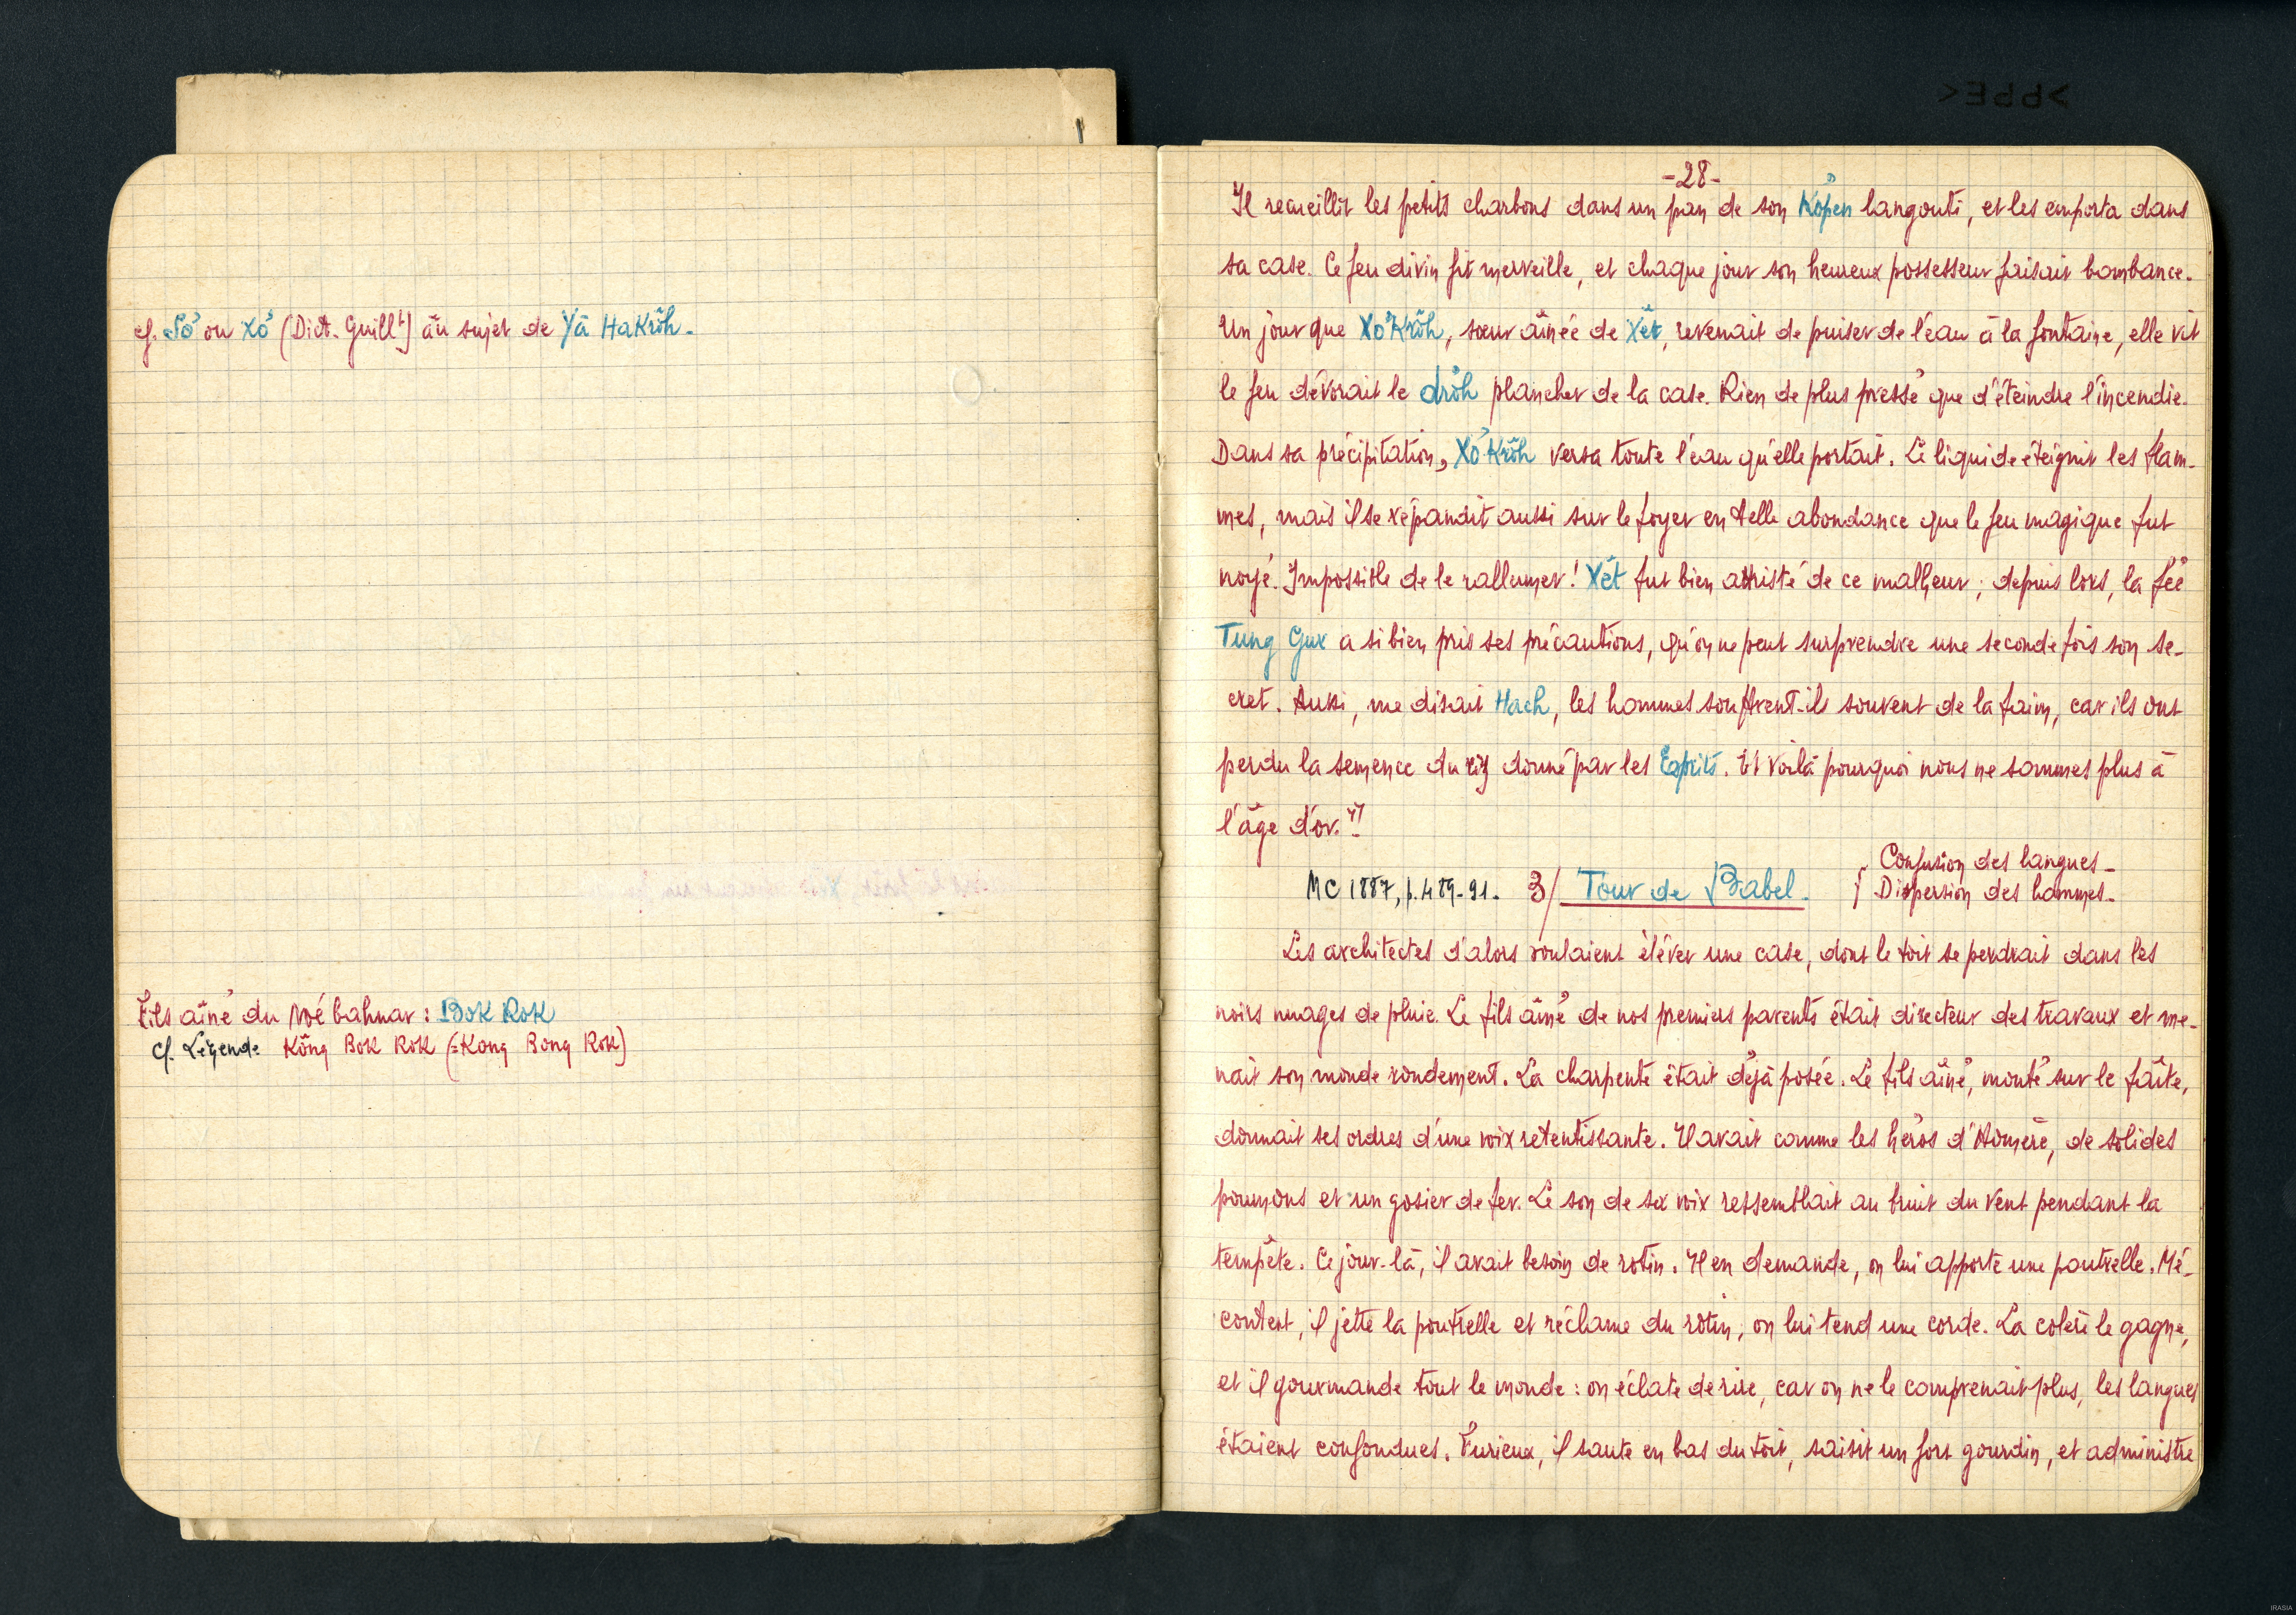 cf. Sơ̆ ou Xơ̆ (Dict. Guill^t) au sujet de Yă HaKrŏh.
Fils aîné du Noé bahnar : Bok Rok
cf. Légende Kŏng Bok Rok (= Kong Bong Rok)
-28-
Il recueillit les petits charbons dans un pan de son Kơ̆pen langouti, et les emporta dans
sa case. Ce feu divin fit merveille, et chaque jour son heureux possesseur faisait bombance.
Un jour que Xơ̆ Krŏh, sœur aînée de Xĕt, revenait de puiser de l'eau à la fontaine, elle vit
le feu dévorait le drŏh plancher de la case. Rien de plus pressé que d'éteindre l'incendie.
Dans sa précipitation, Xơ̆ Krŏh versa toute l'eau qu'elle portait. Le liquide éteignit les flam-
mes, mais il se répandit aussi sur le foyer en telle abondance que le feu magique fut
noyé. Impossible de le rallumer ! Xĕt fut bien attristé de ce malheur ; depuis lors, la fée
Tung Gur a si bien pris ses précautions, qu'on ne peut surprendre une seconde fois son se-
cret. Aussi, me disait Hach, les hommes souffrent-ils souvent de la faim, car ils ont
perdu la semence du riz donné par les Esprits. Et voilà pourquoi nous ne sommes plus à
l'âge d'or."
Confusion des langues-
MC 1887, p. 489-91. 3/ Tour de Babel. { Dispersion des hommes-
Les architectes d'alors voulaient élever une case, dont le toit se perdrait dans les
noirs nuages de pluie. Le fils aîné de nos premiers parents était directeur des travaux et me-
nait son monde rondement. La charpente était déjà posée. Le fils aîné, monté sur le faîte,
donnait ses ordres d'une voix retentissante. Il avait comme les héros d'Homère, de solides
poumons et un gosier de fer. Le son de sa voix ressemblait au bruit du vent pendant la
tempête. Ce jour-là, il avait besoin de rotin. Il en demande, on lui apporte une poutrelle. Mé-
content, il jette la poutrelle et réclame du rotin, on lui tend une corde. La colère le gagne,
et il gourmande tout le monde : on éclate de rire, car on ne le comprenait plus, les langues
étaient confondues. Furieux, il saute en bas du toit, saisit un fort gourdin, et administre
IRASIA